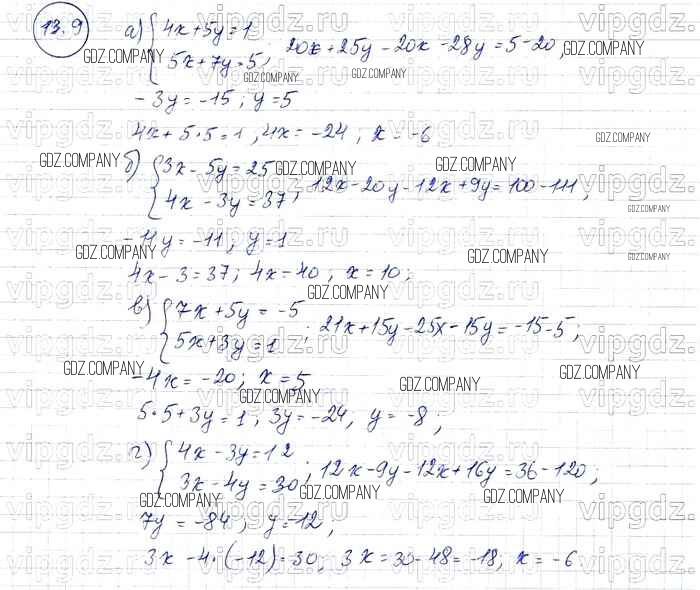 13.9
а) { 4x + 5y = 1
5x + 7y = 5; 20x + 25y - 20x - 28y = 5 - 20,
- 3y = -15; y = 5
4x + 5·5 = 1, 4x = -24; x = -6
б) { 3x - 5y = 25
4x - 3y = 37; 12x - 20y - 12x + 9y = 100 - 111;
- 11y = -11; y = 1
4x - 3 = 37; 4x = 40, x = 10;
в) { 7x + 5y = -5
5x + 3y = 1; 21x + 15y - 25x - 15y = -15 - 5;
-4x = -20; x = 5
5·5 + 3y = 1; 3y = -24, y = -8;
г) { 4x - 3y = 12
3x - 4y = 30; 12x - 9y - 12x + 16y = 36 - 120;
7y = -84; y = 12,
3x - 4·(-12) = 30; 3x = 30 - 48 = -18, x = -6
GDZ.COMPANY
vipgdz.ru